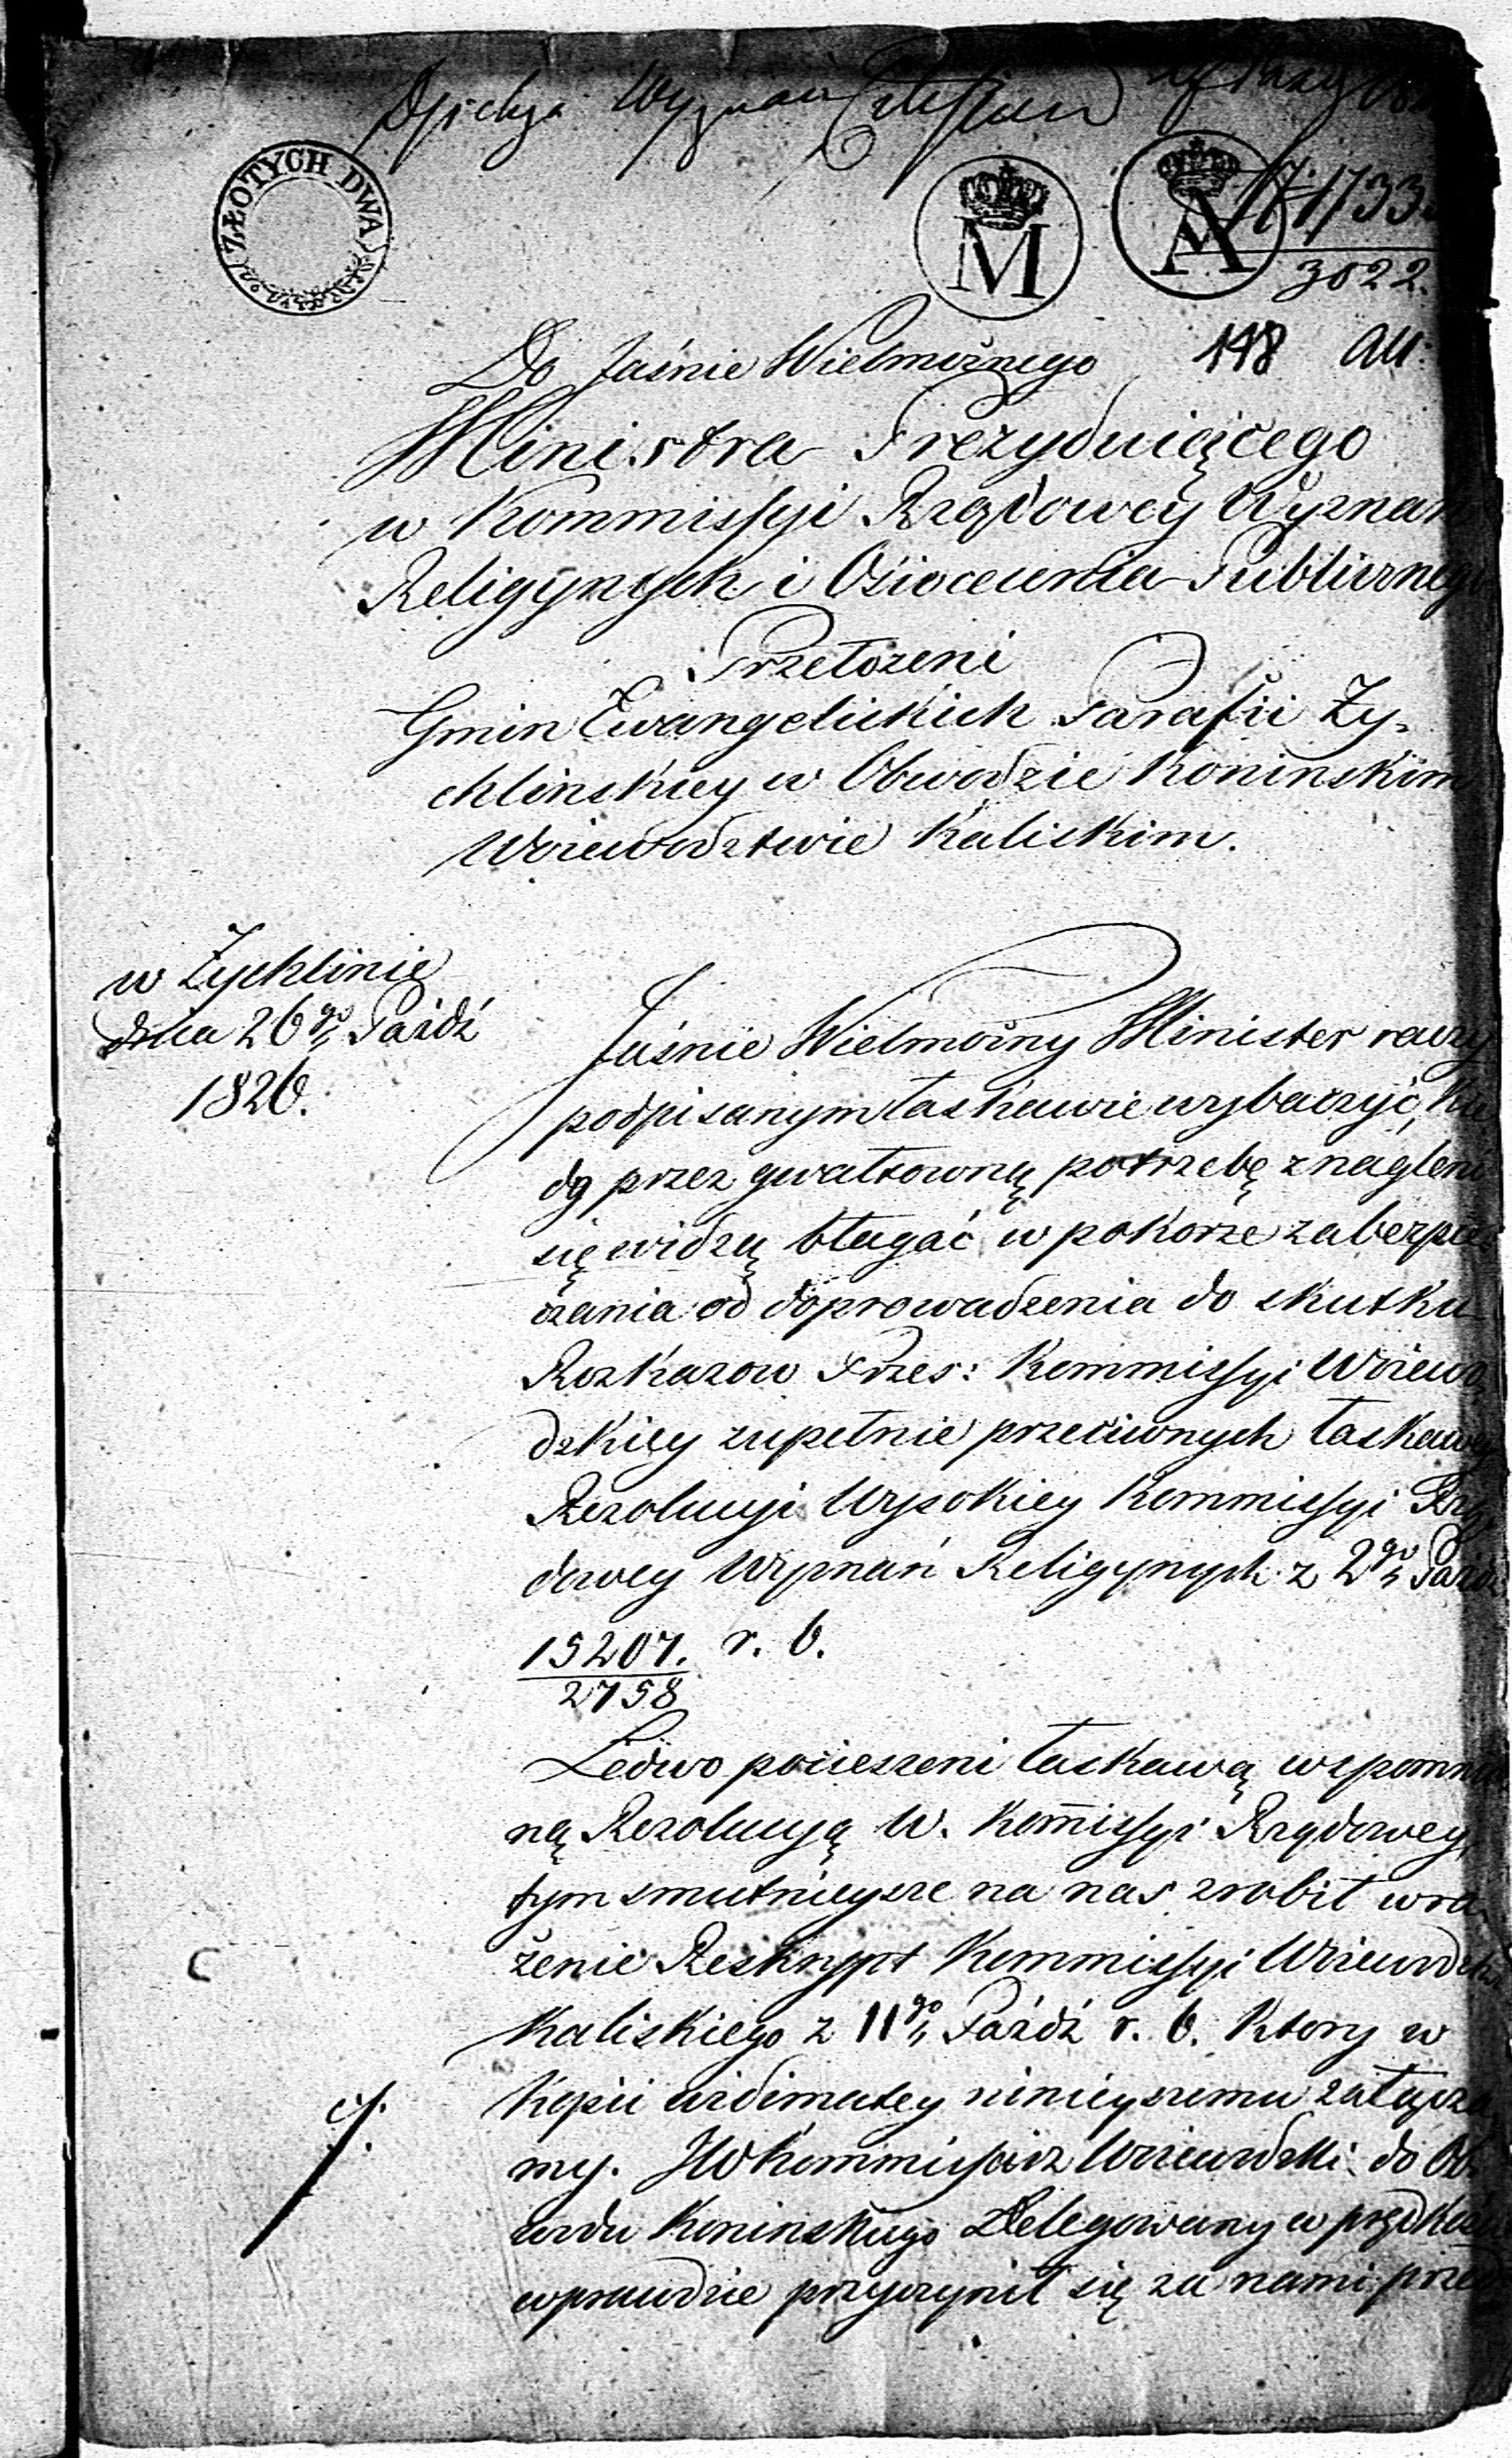 Wyznań
ZŁOTYCH DWA
M
A
17335
3022.
148 All:
Do Jaśnie Wielmożnego
Ministra Prezyduiącego
w Kommissyi Rządowey Wyznań
Religiynych i Oświecenia Publicznego
Przełożeni
Gmin Ewangelickich Parafii Ży-
chlinskiey w Obwodzie Koninskim
Woiewodztwie Kaliskim.
w Żychlinie
dnia 26go Paźdź
1826.
Jaśnie Wielmożny Minister raczy
podpisanym łaskawie wybaczyć, kie
dy przez gwałtowną potrzebę znagleni
się widzą błagać w pokorze zabezpie
czenia od doprowadzenia do skutku
Rozkazow Prześ: Kommissyi Woiewo
dzkiey zupełnie przeciwnych łaskawey
Rezolucyi Wysokiey Kommissyi Rzą
dowey Wyznań Religiynych z 2go Paźdź
15207. r. b.
2758
Ledwo pocieszeni łaskawą wspomnio
ną Rezolucyą W. Kom̄issyi Rządowey,
tym smutnieysze na nas zrobił wra
żenie Reskrypt Kommissyi Woiewodz:
Kaliskiego z 11go Paźdź r. b. Ktory w
Kopii widimatey ninieyszemu załącza
my. JW Kommissarz Woiewodzki do Ob-
wodu Koninskiego Delegowany w prędkości
wprawdzie przyczynił się za nami przed